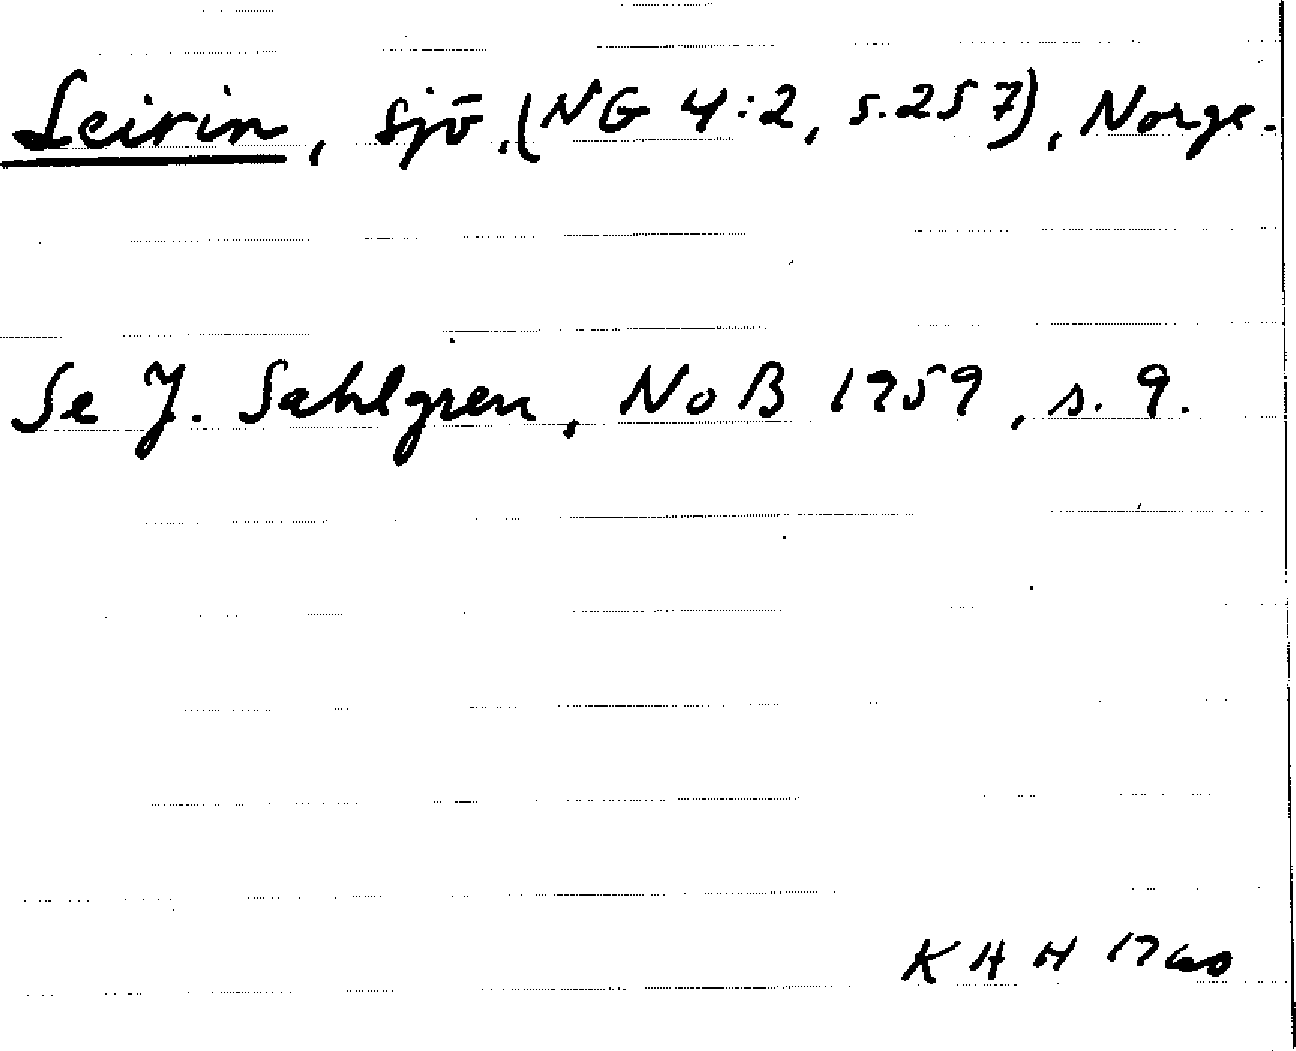 Leirin, sjö, (NG 4:2, s.257), Norge.
Se J. Sahlgren, NoB 1959, s. 9.
KHH 1960